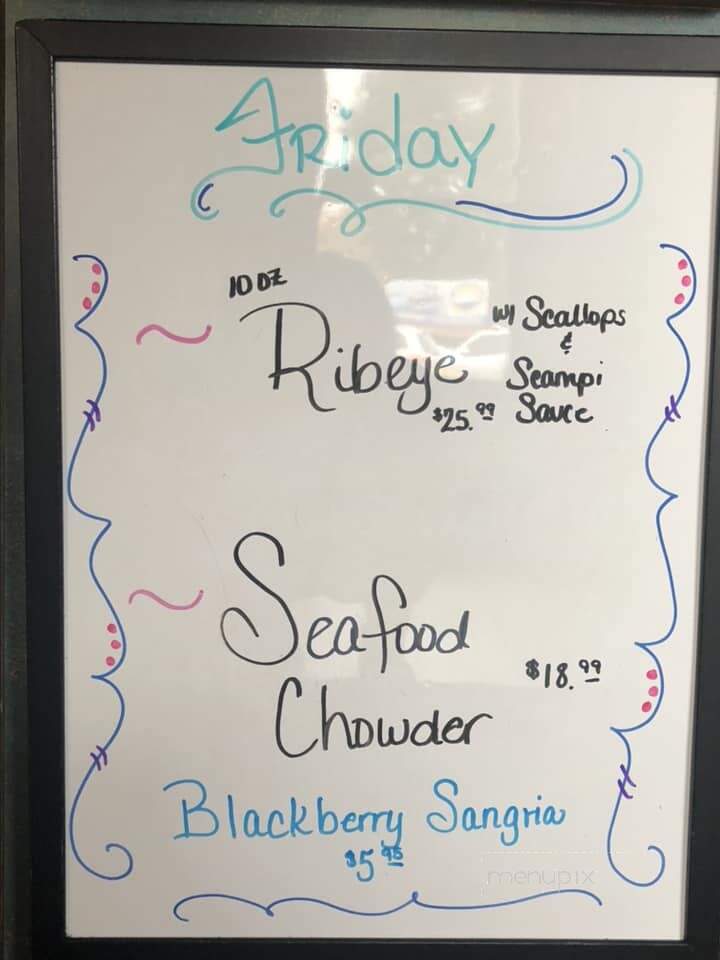 Friday
10 oz
Ribeye
w/ Scallops
&
Scampi
Sauce
$25.99
Seafood
Chowder
$18.99
Blackberry Sangria
$5.95
menupix